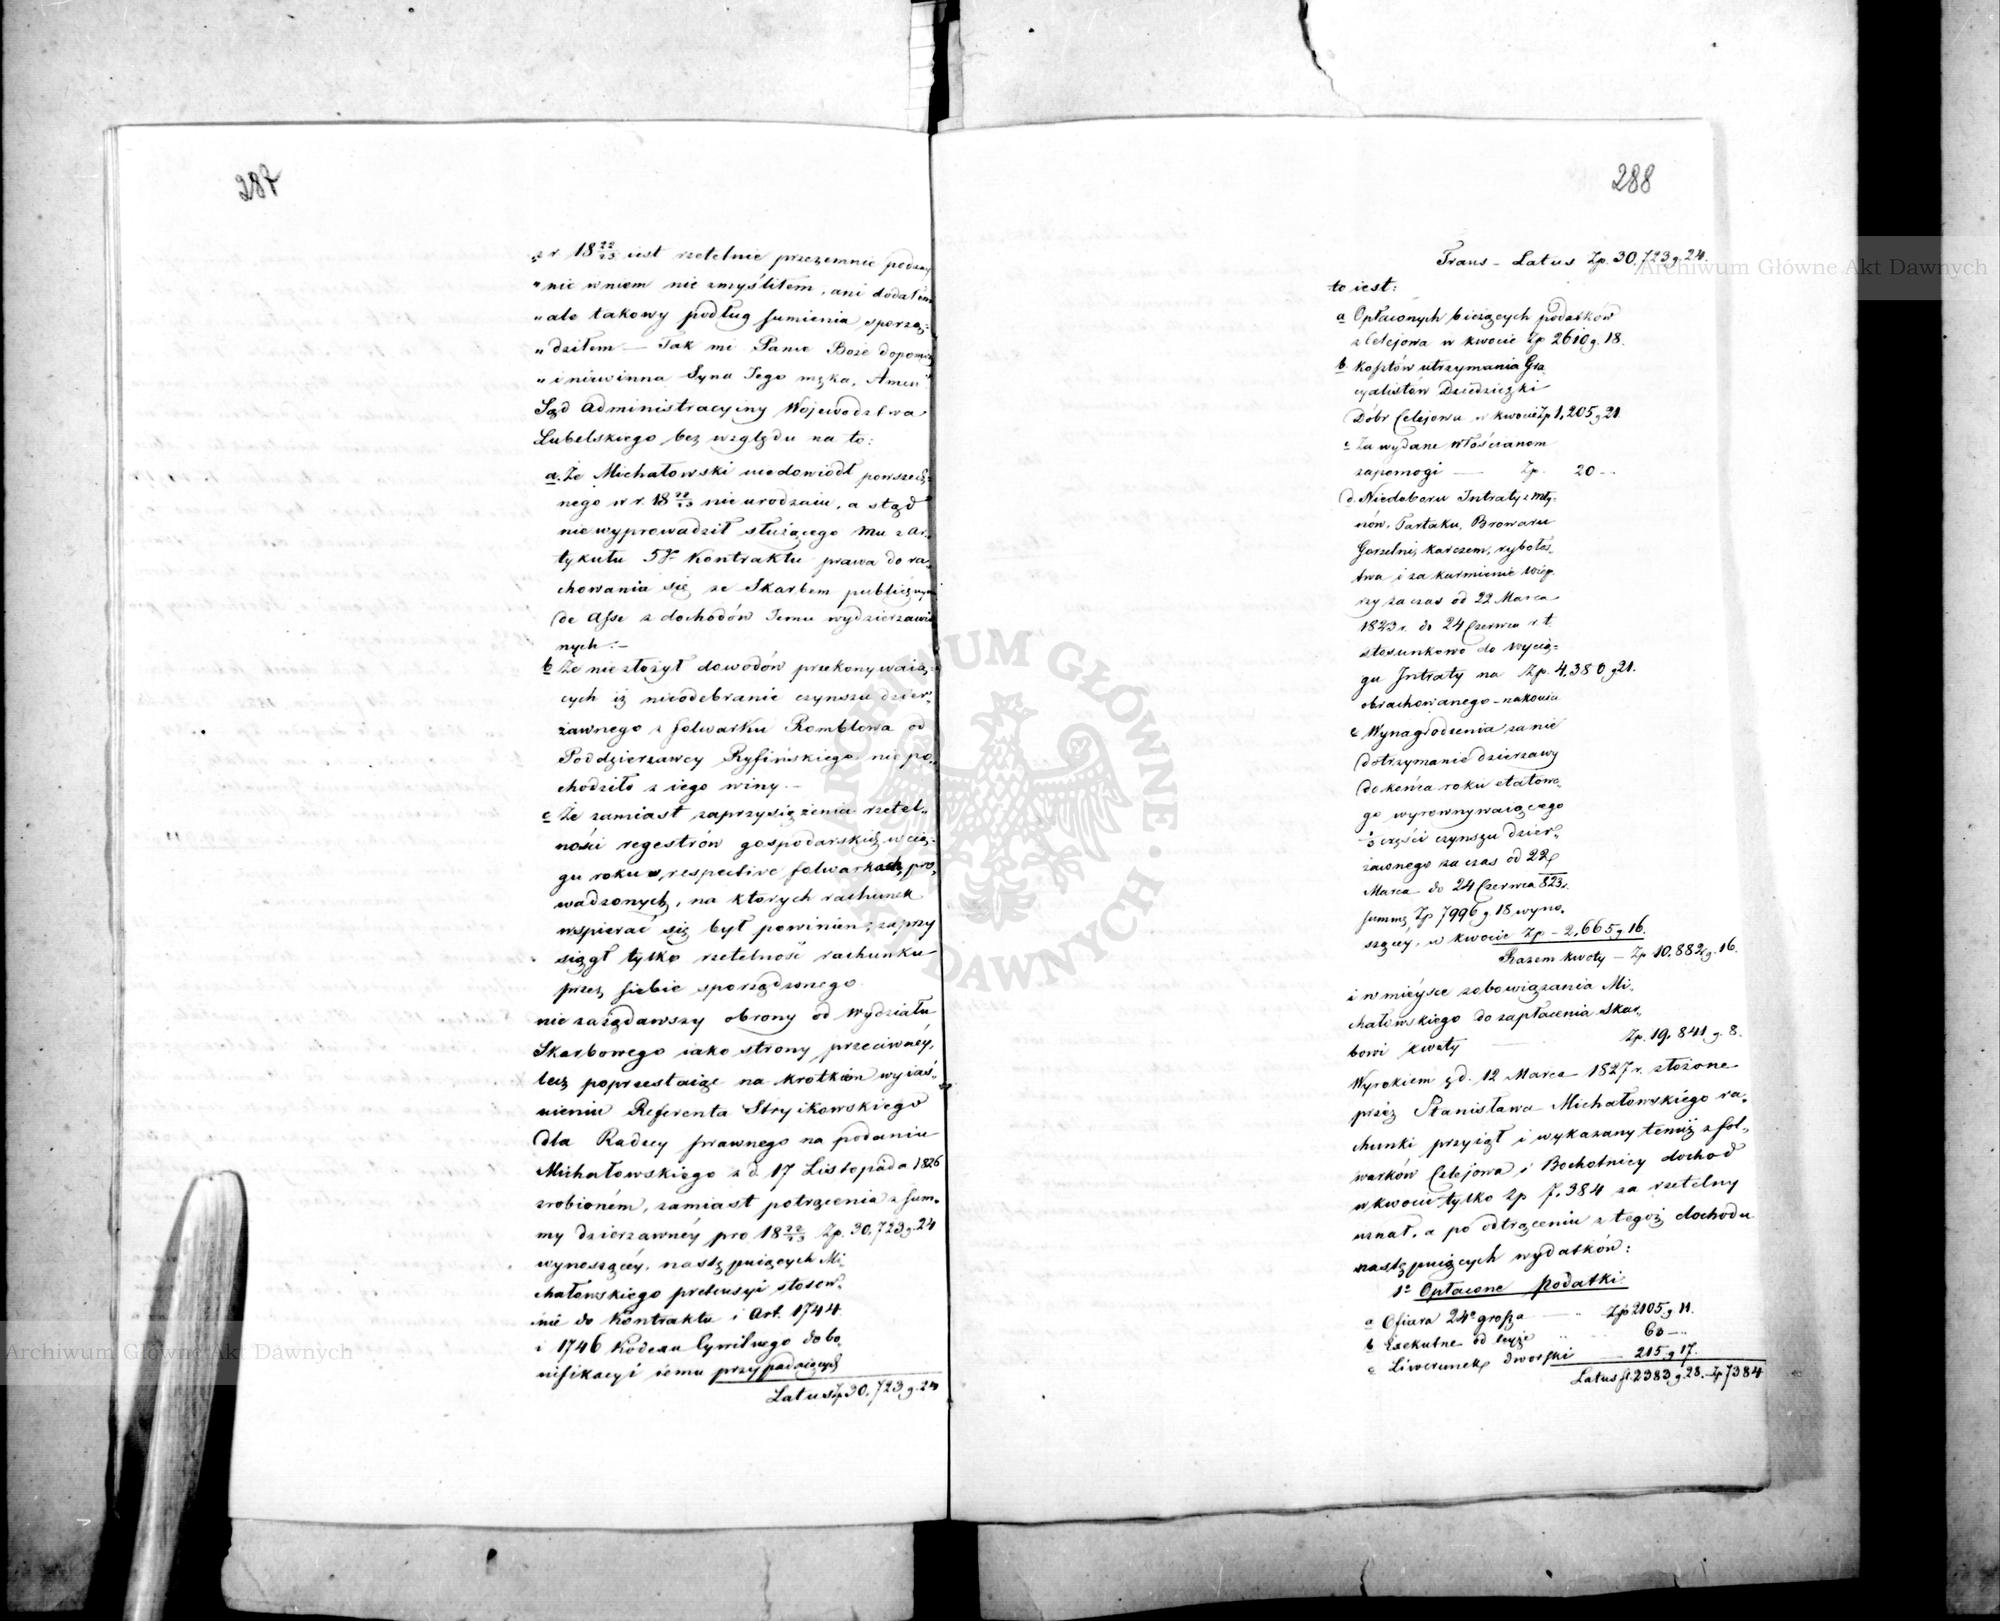 287
„z r. 18 22/23 iest rzetelnie przezemnie podany
„nic w niem nie zmyśliłem, ani dodałem
„ale takowy podług sumienia sporzą-
„dziłem — Tak mi Panie Boże dopomoż
„i niewinna Syna Jego męka, Amen"
Sąd Administracyjny Wojewodztwa
Lubelskiego bez względu na to:
a. Że Michałowski nie dowiodł powszech-
nego w r. 18 22/23 nieurodzaiu, a stąd
nie wyprowadził służącego mu z ar-
tykułu 5 Kontraktu prawa do ra-
chowania się ze Skarbem publicznym
de Asse z dochodów Jemu wydzierzawio
nych.—
b Że nie złożył dowodów przekonywaią-
cych iż nieodebranie czynszu dzier-
żawnego z folwarku Rombłowa od
Poddzierżawcy Ryfińskiego nie po-
chodziło z iego winy.—
c Że zamiast zaprzysiężenia rzetel-
ności regestrów gospodarskich w cią-
gu roku w respective folwarkach pro-
wadzonych, na których rachunek
wspierać się był powinien, zaprzy
siągł tylko rzetelność rachunku
przez siebie sporządzonego.
nie zażądawszy obrony od Wydziału
Skarbowego iako strony przeciwnéy,
lecz poprzestaiąc na krótkiem wyiaś-
nieniu Referenta Stryikowskiego
dla Radcy prawnego na podaniu
Michałowskiego z d. 17 Listopada 1826
zrobioném, zamiast potrącenia z sum-
my dzierzawnéy pro 18 22/23 Zp. 30,723 g. 24
wynoszącéy, następuiących Mi-
chałowskiego pretensyi stosow-
nie do Kontraktu i Art. 1744
i 1746 Kodexu Cywilnego do bo-
nifikacyi iemu przypadaiących
Latus Zp 30,723 g. 24
288
Trans - Latus Zp. 30,723 g. 24.
to iest:
a Opłaconych bieżących podatków
z Celejowa w kwocie Zp 2610 g. 18.
b Kosztów utrzymania Gra
cyalistów Dziedziczki
Dóbr Celejowa w kwocie Zp 1,205 g 21
c Za wydane Włościanom
zapomogi — Zp. 20 -
d. Niedoboru Intraty z mły-
nów, Tartaku, Browaru
Gorzelni, karczem, rybołos-
twa i za karmienie wiep-
rzy za czas od 22 Marca
1823 r. do 24 Czerwca r. t.
stosunkowo do wycią-
gu Intraty na Zp. 4,380 g 21.
obrachowanego - nakoniec
e Wynagrodzenia za nie
dotrzymanie dzierzawy
do końca roku etatowe-
go wyrownywaiącego
1/3 części czynszu dzier-
żawnego za czas od 22
Marca do 24 Czerwca 823 r.
summę Zp 7996 g 18 wyno-
szącéy, w kwocie Zp - 2,665 g. 16.
Razem kwoty — Zp 10,882 g. 16.
i w mieysce zobowiązania Mi-
chałowskiego do zapłacenia Skar-
bowi kwoty Zp. 19,841 g. 8.
Wyrokiem z d. 12 Marca 1827 r. złożone
przez Stanisława Michałowskiego ra-
chunki przyiął i wykazany temiż z fol-
warków Celejowa i Bochotnicy dochod
w kwocie tylko Zp 7,384 za rzetelny
uznał, a po odtrąceniu z tegoż dochodu
następuiących wydatków:
1° Opłacone podatki
a Ofiara 24° grosza — Zp 2105 g. 11.
b Exekutne od teyże 63 —.
c Liwerunek dworski — 215 g 17.
Latus fl. 2383 g. 28. — Zp 7384
Archiwum Główne Akt Dawnych
Archiwum Główne Akt Dawnych
ARCHIWUM GŁÓWNE AKT DAWNYCH